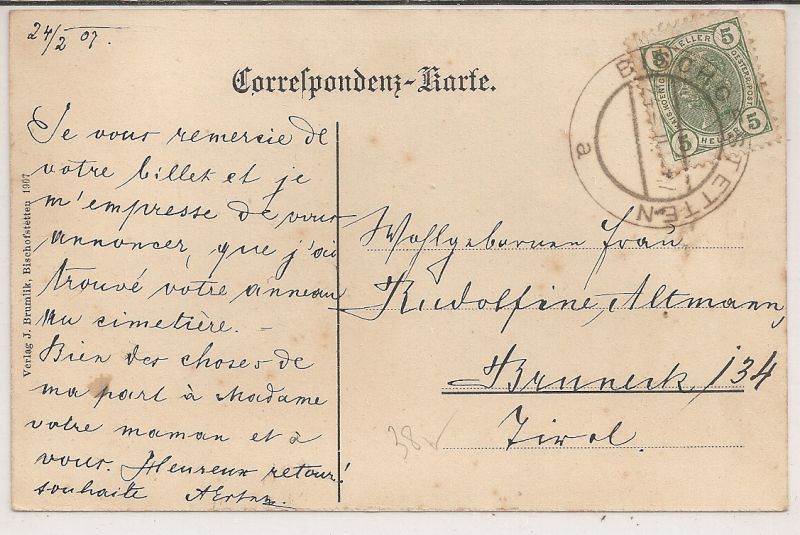 24/2 07.
Correspondenz-Karte.
Je vous remercie de
votre billet et je
m'empresse de vous
annoncer, que j'ai
trouvé votre anneau
au cimetière. –
Bien des choses de
ma part à Madame
votre maman et à
vous. Heureux retour!
souhaite
Wohlgeborenen Frau
Rudolfine Altmann,
Bruneck, 134
Tirol.
38
Verlag J. Brumlik, Bischofstetten 1907
5 HELLER 5
OESTERR. POST
5 HELLER 5
STETTEN
a